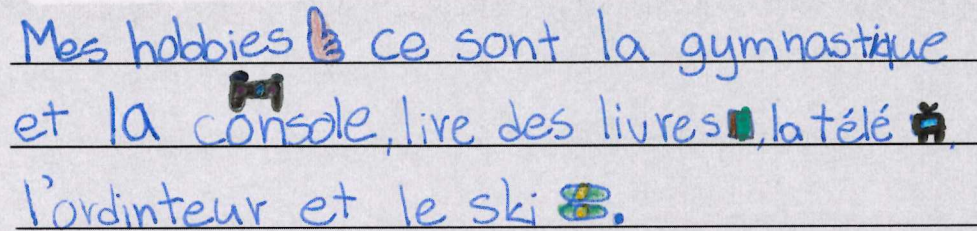 Mes hobbies ce sont la gymnastique
et la console, lire des livres, la télé,
l'ordinteur et le ski.